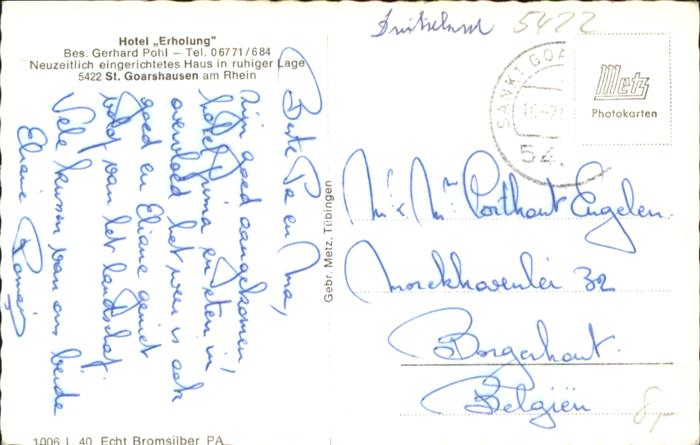 Hotel „Erholung"
Bes. Gerhard Pohl – Tel. 06771/684
Neuzeitlich eingerichtetes Haus in ruhiger Lage
5422 St. Goarshausen am Rhein
Beste Pa en Ma,
Zijn goed aangekomen,
hotel prima en eten in
overvloed het weer is ook
goed en Eliane geniet
volop van het landschap.
Vele kussen van ons beide
Eliane Romain
1006 L 40 Echt Bromsilber PA
Gebr. Metz, Tübingen
5422
SANKT GOA
54.
Metz
Photokarten
Mr & Mr Porthout Engelen
Morckhovenlei 32
Borgerhout.
Belgiën